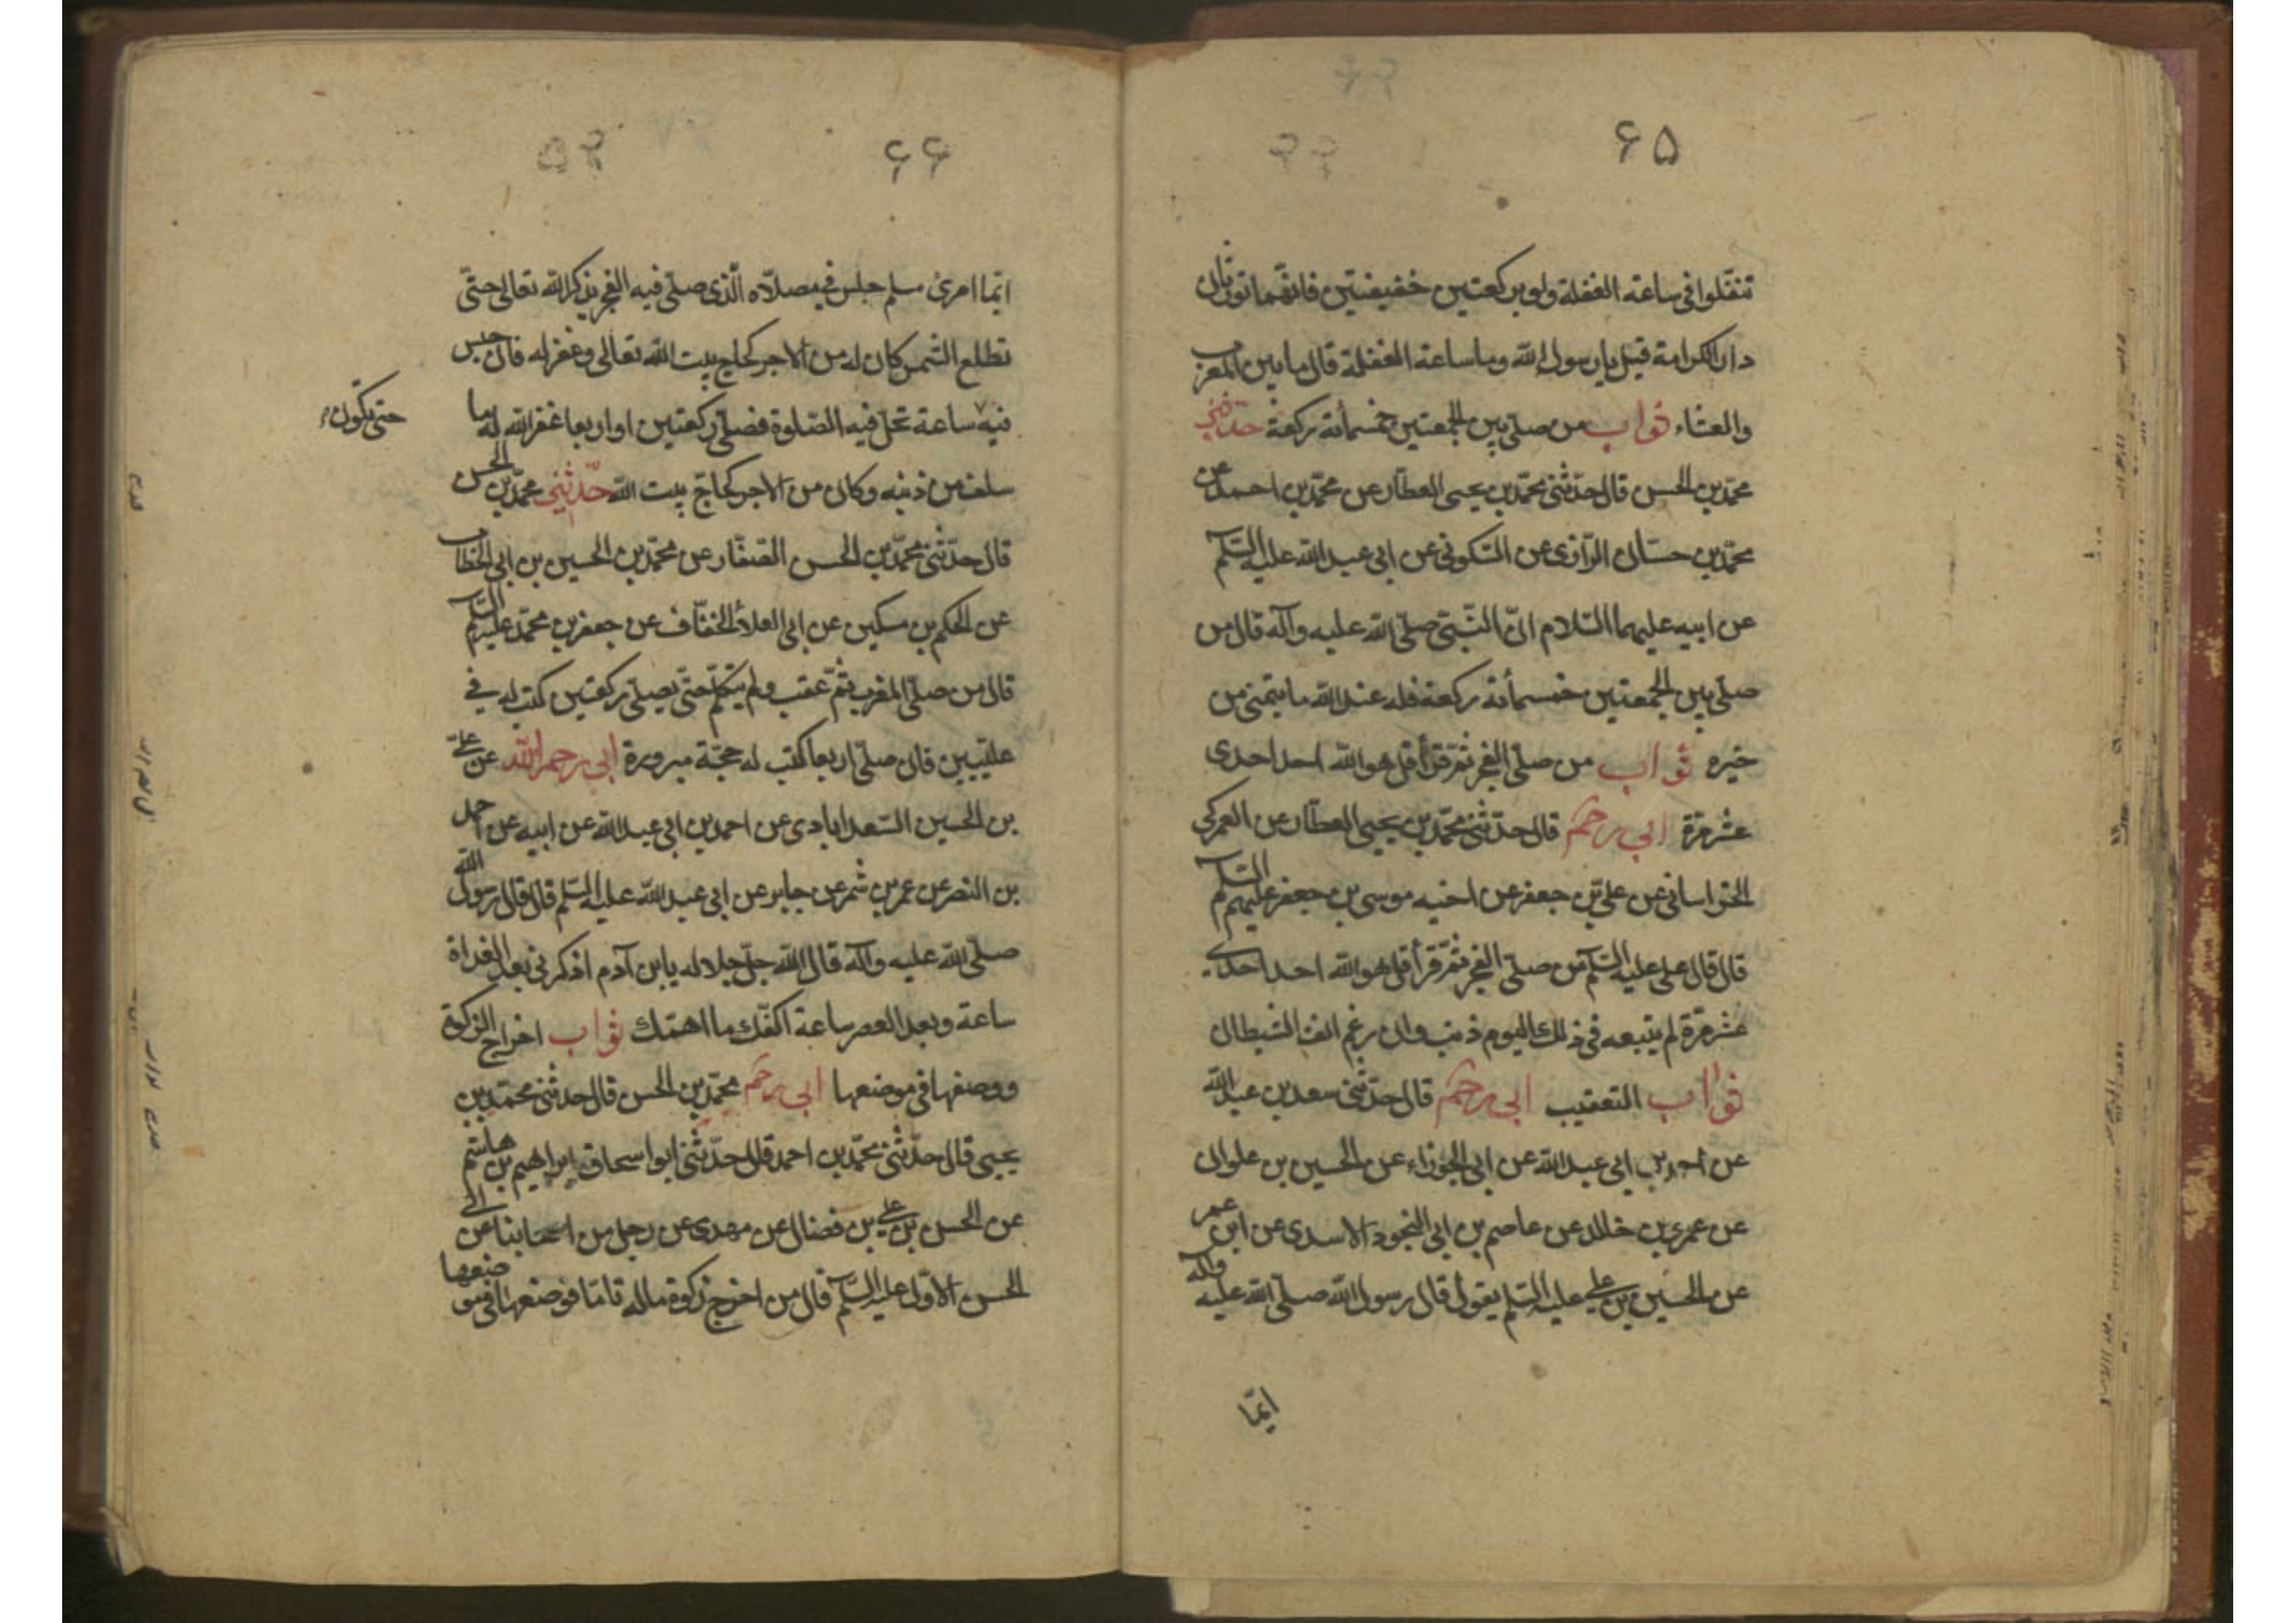 ۶۵
تنفّلوا فی ساعة الغفلة ولو برکعتین خفیفتین فانهّما تورثان
دار الکرامة قیل یا رسول الله وما ساعة الغفلة قال ما بین المغرب
والعشاء ثواب من صلّی بین الجمعتین خمسمأئة رکعة حدّثنی
محمّد بن الحسن قال حدّثنی محمّد بن یحیی العطّار عن محمّد بن احمد عن
محمّد بن حسّان الرّازی عن السّکونی عن ابی عبد الله علیه السّلم
عن ابیه علیهما السّلام انّ النّبیّ صلّی الله علیه وآله قال من
صلّی بین الجمعتین خمسمأئة رکعة فله عند الله ما یتمنی من
خیره ثواب من صلّی الفجر ثمّ قرأ قل هو الله احد احدی
عشر مرّة ابی رحمه قال حدّثنی محمّد بن یحیی العطّار عن العمرکی
الخراسانی عن علیّ بن جعفر عن اخیه موسی بن جعفر علیهم السّلم
قال قال علی علیه السّلم من صلّی الفجر ثمّ قرأ قل هو الله احد احدی
عشر مرّة لم یتبعه فی ذلک الیوم ذنب وان رغم انف الشیطان
ثواب التعقیب ابی رحمه قال حدّثنی سعد بن عبد الله
عن احمد بن ابی عبد الله عن ابی الجوزاء عن الحسین بن علوان
عن عمرو بن خالد عن عاصم بن ابی النجود الاسدی عن ابن عمر
عن الحسین بن علی علیه السّلم یقول قال رسول الله صلّی الله علیه وآله
ایّما
۶۶
ایّما امرئ مسلم جلس فی مصلّاه الّذی صلّی فیه الفجر یذکر الله تعالی حتّی
تطلع الشّمس کان له من الاجر کحاج بیت الله تعالی وغفر له فان جلس
فیه ساعة تحل فیه الصّلوة فصلّی رکعتین او اربعا غفر الله له ما
حتی تکون
سلف من ذنبه وکان من الاجر کحاجّ بیت الله حدّثنی محمّد بن الحسن
قال حدّثنی محمّد بن الحسن الصّفّار عن محمّد بن الحسین بن ابی الخطّاب
عن الحکم بن مسکین عن ابی العلاء الخفّاف عن جعفر بن محمّد علیهم السّلم
قال من صلّی المغرب ثمّ عقب ولم یتکلّم حتّی یصلّی رکعتین کتب له فی
علیّیین فان صلّی اربعا کتب له حجّة مبرورة ابی رحمه الله عن علیّ
بن الحسین السّعدابادی عن احمد بن ابی عبد الله عن ابیه عن احمد
بن النضر عن عمر بن شمر عن جابر عن ابی عبد الله علیه السّلم قال قال رسول الله
صلّی الله علیه وآله قال الله جلّ جلاله یابن آدم اذکرنی بعد الغداة
ساعة وبعد العصر ساعة اکفّک ما اهمّک ثواب اخراج الزکوة
ووضعها فی موضعها ابی رحمه محمّد بن الحسن قال حدثنی محمّد بن
یحیی قال حدّثنی محمّد بن احمد قال حدّثنی ابو اسحاق ابراهیم بن هاشم
عن الحسن بن علی بن فضال عن مهدی عن رجل من اصحابنا عن ابی
الحسن الاوّل علیه السّلم قال من اخرج زکوة ماله تامّا فوضعها فی موضعها